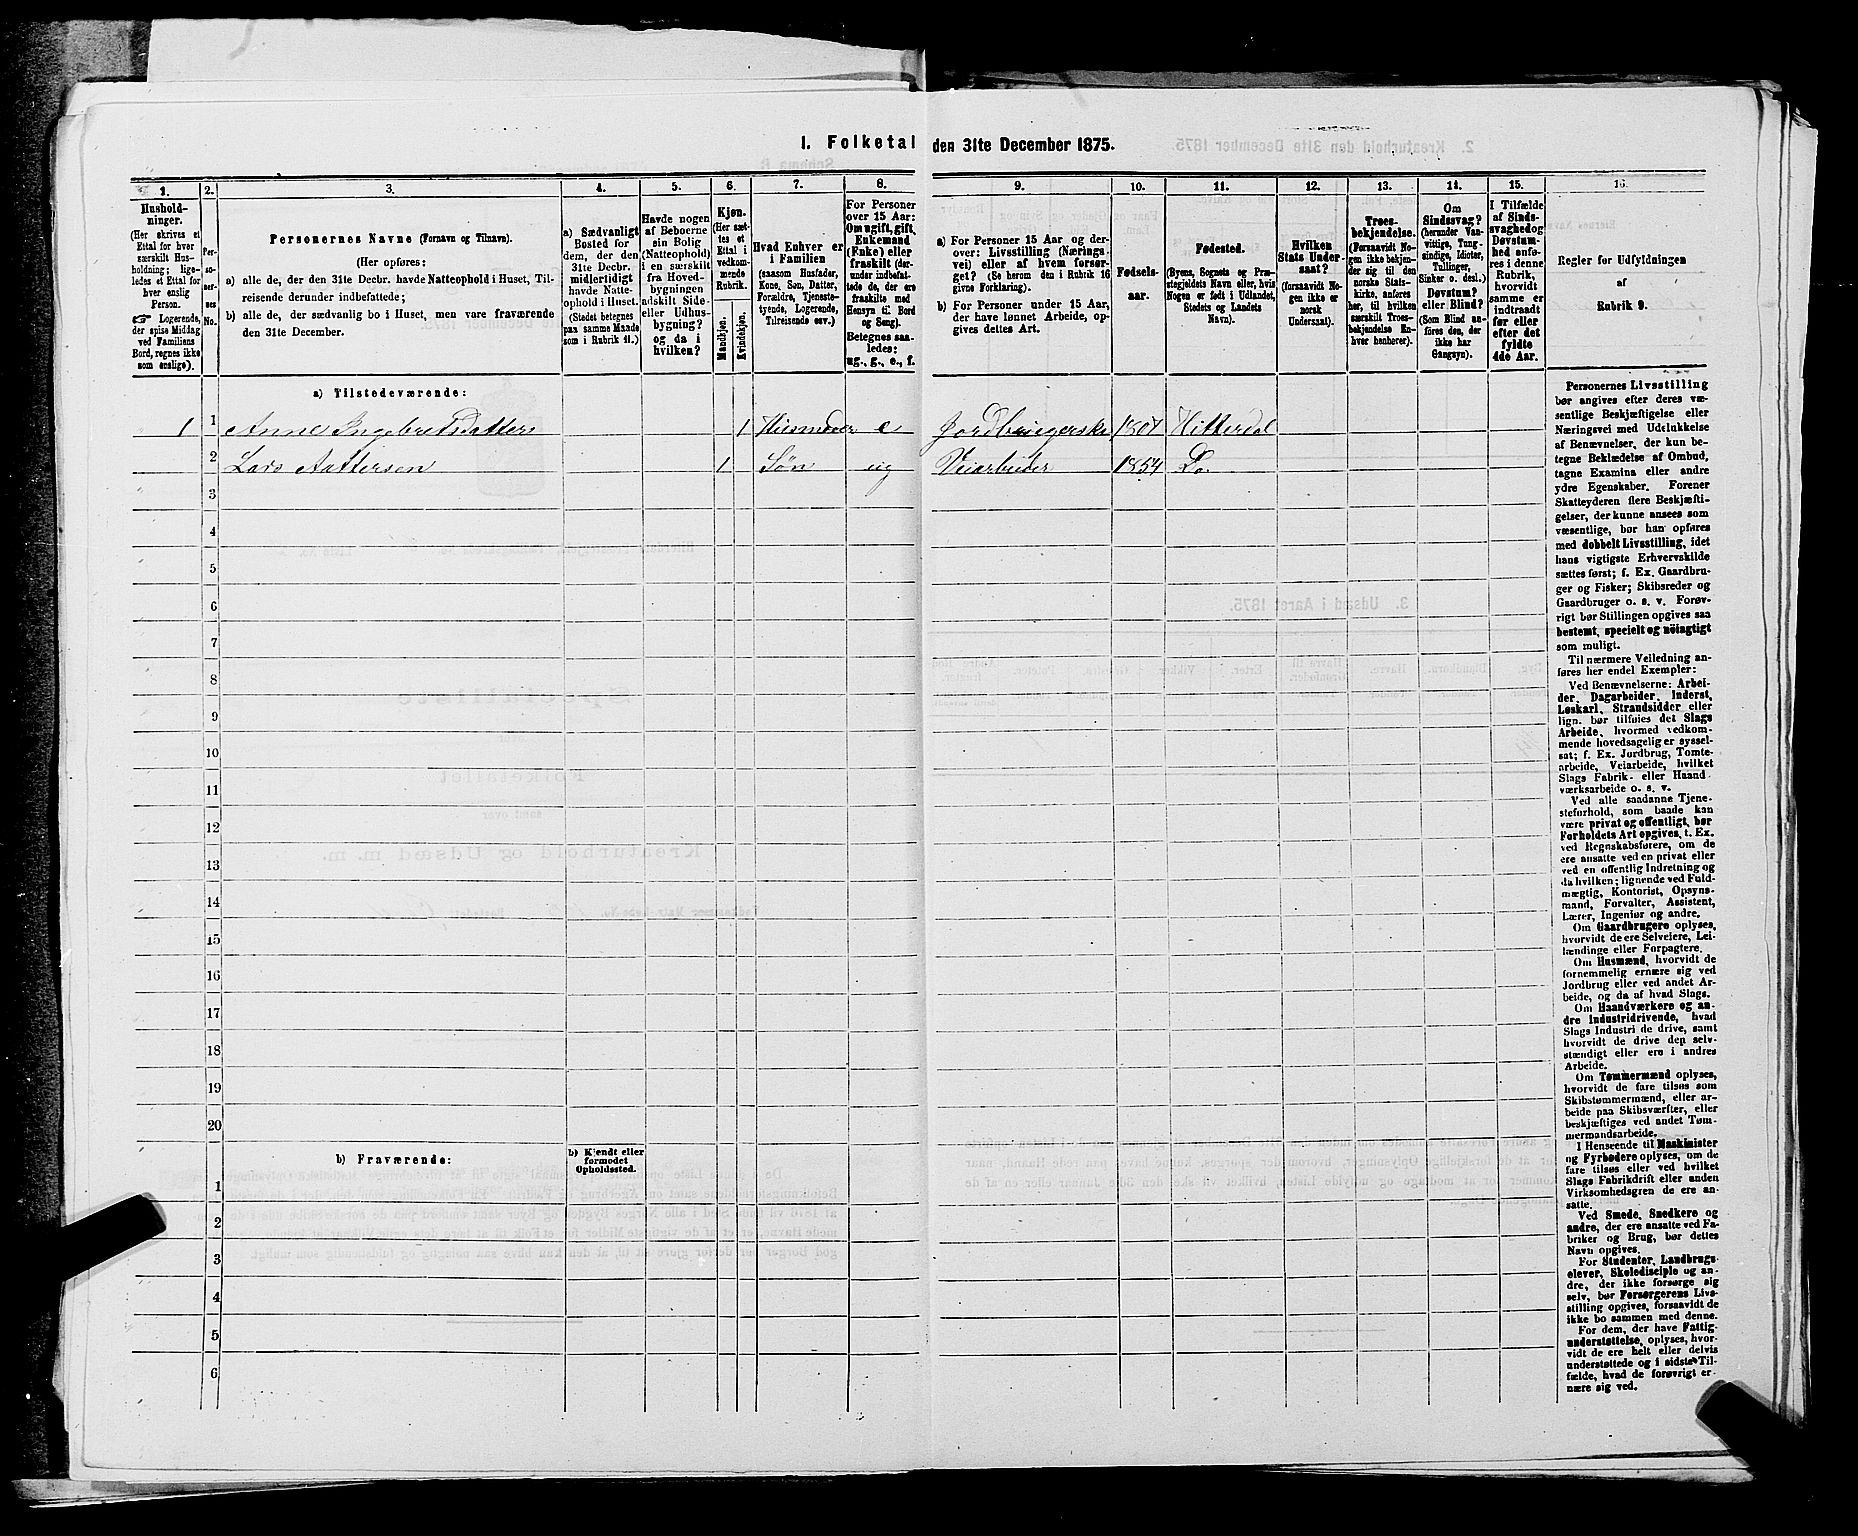 1. Folketal den 31te December 1875.
1.
2.
3.
4.
5.
6.
7.
8.
9.
10.
11.
12.
13.
14.
15.
16.
Hushold-
ninger.
(Her skrives et
Ettal for hver
særskilt Hus-
holdning; lige-
ledes et Ettal for
hver enslig
Person.
☞ Logerende,
der spise Middag
ved Familiens
Bord, regnes ikke
som enslige).
Per-
so-
ner-
nes
No.
Personernes Navne (Fornavn og Tilnavn).
(Her opføres:
a) alle de, der den 31te Decbr. havde Natteophold i Huset, Til-
reisende derunder indbefattede;
b) alle de, der sædvanlig bo i Huset, men vare fraværende
den 31te December.
a) Sædvanligt
Bosted for
dem, der den
31te Decbr.
midlertidigt
havde Natte-
ophold i Huset.
(Stedet betegnes
paa samme Maade
som i Rubrik 11.)
Havde nogen
af Beboerne
sin Bolig
(Natteophold)
i en særskilt
fra Hoved-
bygningen
adskilt Side-
eller Udhus-
bygning?
og da i
hvilken?
Kjøn.
(Her sæt-
tes et
Ettal i
vedkom-
mende
Rubrik.
Mandkjøn.
Kvindekjøn.
Hvad Enhver er
i Familien
(saasom Husfader,
Kone, Søn, Datter,
Forældre, Tjeneste-
tyende, Logerende,
Tilreisende osv.)
For Personer
over 15 Aar:
Om ugift, gift,
Enkemand
(Enke) eller
fraskilt (der-
under indbefat-
tede de, der ere
fraskilte med
Hensyn til Bord
og Seng).
Betegnes saa-
ledes:
ug., g., e., f.
a) For Personer 15 Aar og der-
over: Livsstilling (Nærings-
vei) eller af hvem forsør-
get? (Se herom den i Rubrik 16
givne Forklaring).
b) For Personer under 15 Aar,
der have lønnet Arbeide, op-
gives dettes Art.
Fødsels-
aar.
Fødested.
(Byens, Sognets og Præ-
stegjeldets Navn eller, hvis
Nogen er født i Udlandet,
Stedets og Landets
Navn).
Hvilken
Stats Under-
saat?
(forsaavidt No-
gen ikke er
norsk
Undersaat).
Troes-
bekjendelse.
(Forsaavidt No-
gen ikke bekjen-
der sig til den
norske Stats-
kirke, anføres
her, til hvilken
særskilt Troes-
bekjendelse En-
hver henhører).
Om
Sindssvag?
(herunder Van-
vittige, Tung-
sindige, Idioter,
Tullinger,
Sinker o. desl.)
Døvstum?
eller Blind?
(Som Blind an-
føres den, der
ikke har
Gangsyn).
I Tilfælde
af Sinds-
svaghed og
Døvstum-
hed anfø-
res i denne
Rubrik,
hvorvidt
samme er
indtraadt
før eller
efter det
fyldte
4de Aar.
Regler for Udfyldningen
af
Rubrik 9.
a) Tilstedeværende:
1 1 Anne Ingebretsdatter 1 Husmoder e Jordbrugerske 1807 Hitterdal
2 Lars Aattersen 1 Søn ug Veiarbeider 1854 Do.
3
4
5
6
7
8
9
10
11
12
13
14
15
16
17
18
19
20
b) Fraværende:
b) Kjendt eller
formodet
Opholdssted.
1
2
3
4
5
6
Personernes Livsstilling
bør angives efter deres væ-
sentlige Beskjæftigelse eller
Næringsvei med Udelukkelse
af Benævnelser, der kun be-
tegne Beklædelse af Ombud,
tagne Examina eller andre
ydre Egenskaber. Forener
Skatteyderen flere Beskjæfti-
gelser, der kunne ansees som
væsentlige, bør han opføres
med dobbelt Livsstilling, idet
hans vigtigste Erhvervskilde
sættes først; f. Ex. Gaardbru-
ger og Fisker; Skibsreder og
Gaardbruger o. s. v. Forøv-
rigt bør Stillingen opgives saa
bestemt, specielt og nöiagtigt
som muligt.
Til nærmere Veiledning an-
føres her endel Exempler:
Ved Benævnelserne: Arbei-
der, Dagarbeider, Inderst,
Løskarl, Strandsidder eller
lign. bør tilføies det Slags
Arbeide, hvormed vedkom-
mende hovedsagelig er syssel-
sat; f. Ex. Jordbrug, Tomte-
arbeide, Veiarbeide, hvilket
Slags Fabrik- eller Haand-
værksarbeide o. s. v.
Ved alle saadanne Tjene-
steforhold, som baade kan
være privat og offentligt, bør
Forholdets Art opgives, t. Ex.
ved Regnskabsførere, om de
ere ansatte ved en privat eller
ved en offentlig Indretning og
da hvilken; lignende ved Fuld-
mægtig, Kontorist, Opsyns-
mand, Forvalter, Assistent,
Lærer, Ingeniør og andre.
Om Gaardbrugere oplyses,
hvorvidt de ere Selveiere, Lei-
lændinge eller Forpagtere.
Om Husmænd, hvorvidt de
fornemmelig ernære sig ved
Jordbrug eller ved andet Ar-
beide, og da af hvad Slags.
Om Haandværkere og an-
dre Industridrivende, hvad
Slags Industri de drive, samt
hvorvidt de drive den selv-
stændigt eller ere i andres
Arbeide.
Om Tømmermænd oplyses,
hvorvidt de fare tilsøs som
Skibstømmermænd, eller ar-
beide paa Skibsværfter, eller
beskjæftiges ved andet Tøm-
mermandsarbeide.
I Henseende til Maskinister
og Fyrbødere oplyses, om de
fare tilsøs eller ved hvilket
Slags Fabrikdrift eller anden
Virksomhedsgren de ere an-
satte.
Ved Smede, Snedkere og
andre, der ere ansatte ved Fa-
briker og Brug, bør dettes
Navn opgives.
For Studenter, Landbrugs-
elever, Skoledisciple og an-
dre, der ikke forsørge sig
selv, bør Forsørgerens Livs-
stilling opgives, forsaavidt de
ikke bo sammen med denne.
For dem, der have Fattig-
understøttelse, oplyses, hvor-
vidt de ere helt eller delvis
understøttede og i sidste Til-
fælde, hvad de forøvrigt er-
nære sig ved.